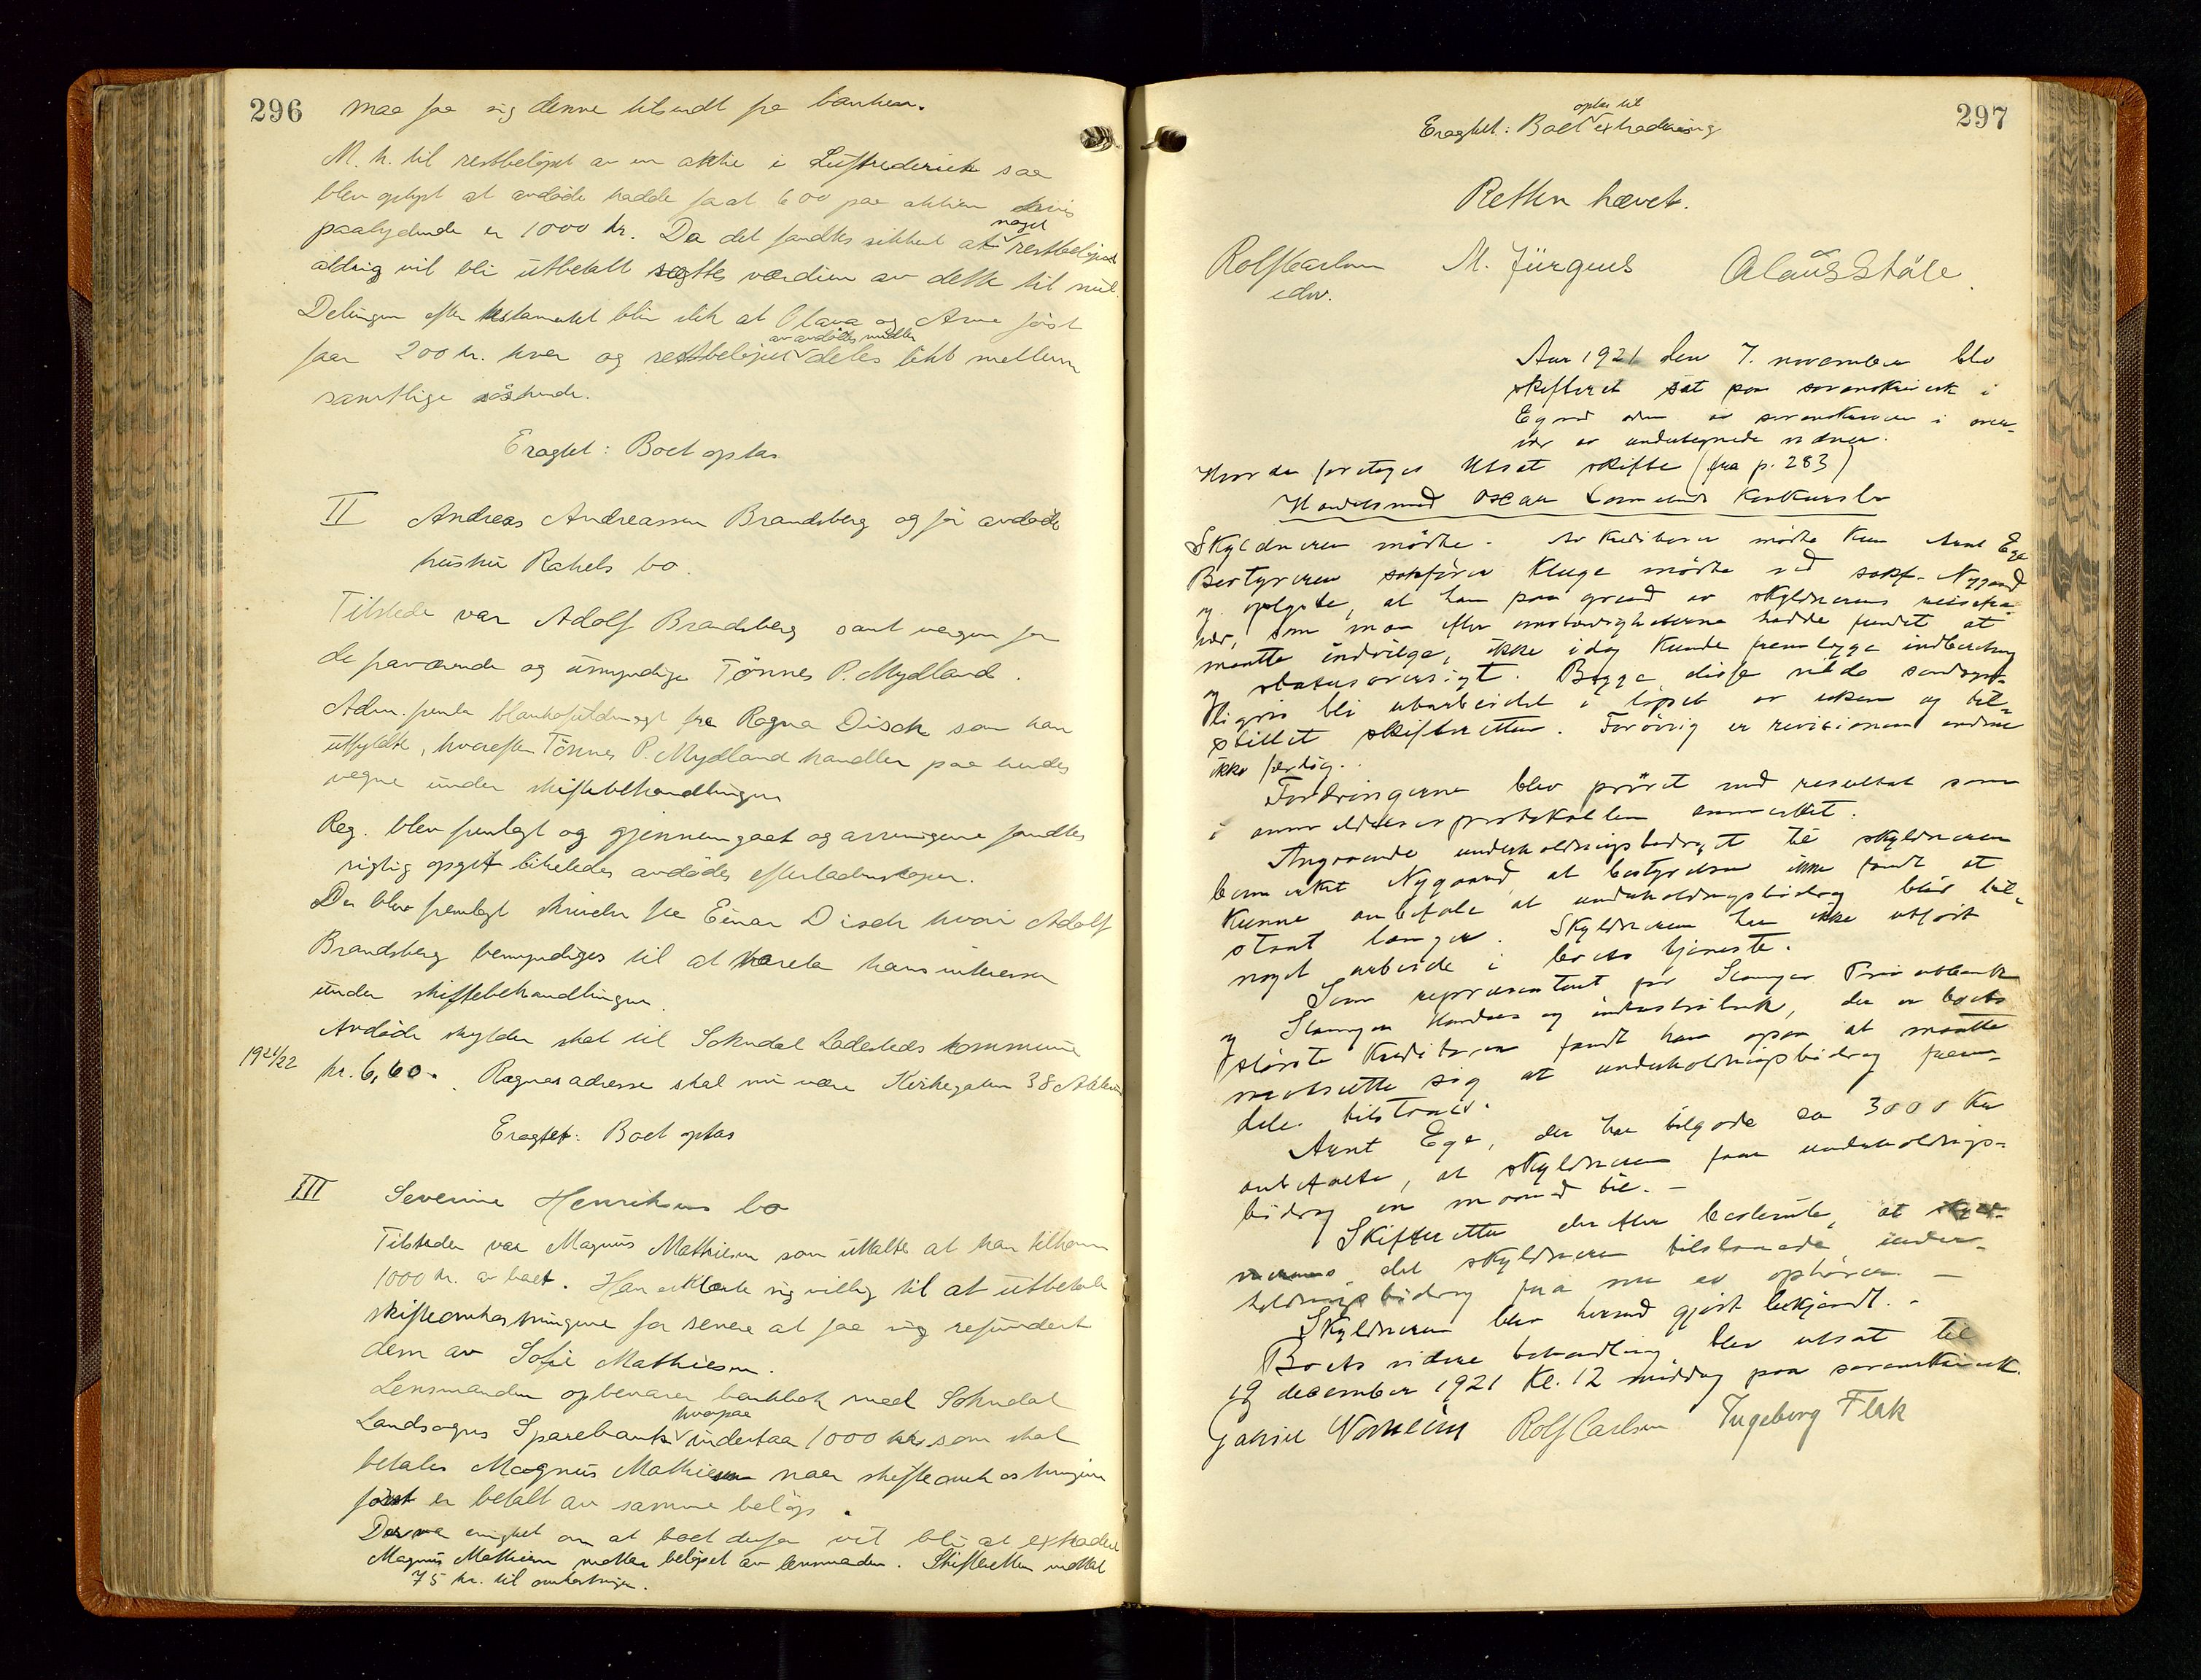 296
maa faa sig denne tilsendt fra banken.
M. h. til restbeløpet av en aktie i Luftrederiet saa
blev oplyst at avdøde hadde faat 600 paa aktien hvis
paalydende er 1000 kr. Da det fandtes sikkert at noget restbeløpet
aldrig vil bli utbetalt sættes værdien av dette til nul.
Delingen efter testamentet blir slik at Olava og Arne først
faar 200 kr. hver og restbeløpet av avdødes midler deles likt mellem
samtlige søskende.
Eragtet: Boet optas
II Andreas Andreassen Brandsberg og før avdøde
hustru Rakels bo.
Tilstede var Adolf Brandsberg samt vergen for
de fraværende og umyndige Tönnes P. Mydland.
Adm. fremla blankofuldmagt fra Ragna Disch som han
utfyldte, hvorefter Tönnes P. Mydland handler paa hendes
vegne under skiftebehandlingen
Reg. blev fremlagt og gjennemgaat og arvingene fandtes
rigtig opgit likeledes avdødes efterladenskaper.
Der blev fremlagt skrivelse fra Einar Disch hvori Adolf
Brandsberg bemyndiges til at vareta hans interesser
under skiftebehandlingen.
Avdøde skylder skat til Sokndal Ladesteds kommune
1921/22 kr. 6,60. Ragnas adresse skal nu være Kirkegaten 38
Eragtet: Boet optas
III Severine Henriksens bo
Tilstede var Magnus Mathiesen som uttalte at han tilkom
1000 kr. av boet. Han erklærte sig villig til at utbetale
skifteomkostningene for senere at faa sig refundert
dem av Sofie Mathiesen.
Lensmanden opbevarer bankbok med Sokndal
Landsogns Sparebank hvorpaa indestaar 1000 kr. som skal
betales Magnus Mathiesen naar skifteomkostningene
først er betalt av samme beløp.
Der var enighet om at boet derfor vil bli at extradere
Magnus Mathiesen mottar beløpet av lensmanden. Skifteretten mottok
75 kr. til omkostninger.
297
Eragtet: Boet optas til extradering
Retten hævet.
Rolf Carlsen M. Jürgens Olaus Ståle
edv.
Aar 1921 den 7. november blev
skifteret sat paa sorenskriverk. i
Egersund av sorenskriveren i over-
vær av undertegnede vidner.
Hvor da foretoges Utsat skifte (fra p. 283)
Handelsmand Oscar konkursbo
Skyldneren mødte. Av kreditorer møtte kun Arnt Ege
Bestyreren sakfører Kluge mødte ved sakf. Nygaard
og oplyste, at han paa grund av skyldnerens reisefra-
vær, som man efter omstændigheterne hadde fundet at
maatte indvilge, ikke idag kunde fremlægge indberetning
og statusoversigt. Begge disse vilde sandsyn-
ligvis bli utarbeidet i løpet av uken og til-
stillet skifteretten. Forøvrig er revisionen endnu
ikke færdig.
Fordringerne blev prøvet med resultat som
i anmeldelsesprotokollen anmerket.
Angaaende underholdningsbidraget til skyldneren
bemerket Nygaard, at bestyrelsen ikke fandt at
kunne anbefale at underholdningsbidrag blir til-
staat længer. Skyldneren har ikke utført
noget arbeide i boets tjeneste.
Som repræsentant for Stavanger Privatbank
og Stavanger Handels og industribank, der er boets
største kreditorer fandt han ogsaa at maatte
motsætte sig at underholdningsbidrag frem-
deles tilstaaes.
Arnt Ege, der har tilgode ca 3000 kr
anbefalte, at skyldneren faar underholdnings-
bidrag en maaned til. —
Skifteretten derefter bestemte, at
det skyldneren tilstaaede under-
holdningsbidrag fra nu av ophører. —
Skyldneren blev hermed gjort bekjendt. -
Boets videre behandling blev utsat til
19 december 1921 kl. 12 middag paa sorenskriverk.
Gabriel Rolf Carlsen Ingeborg Flak